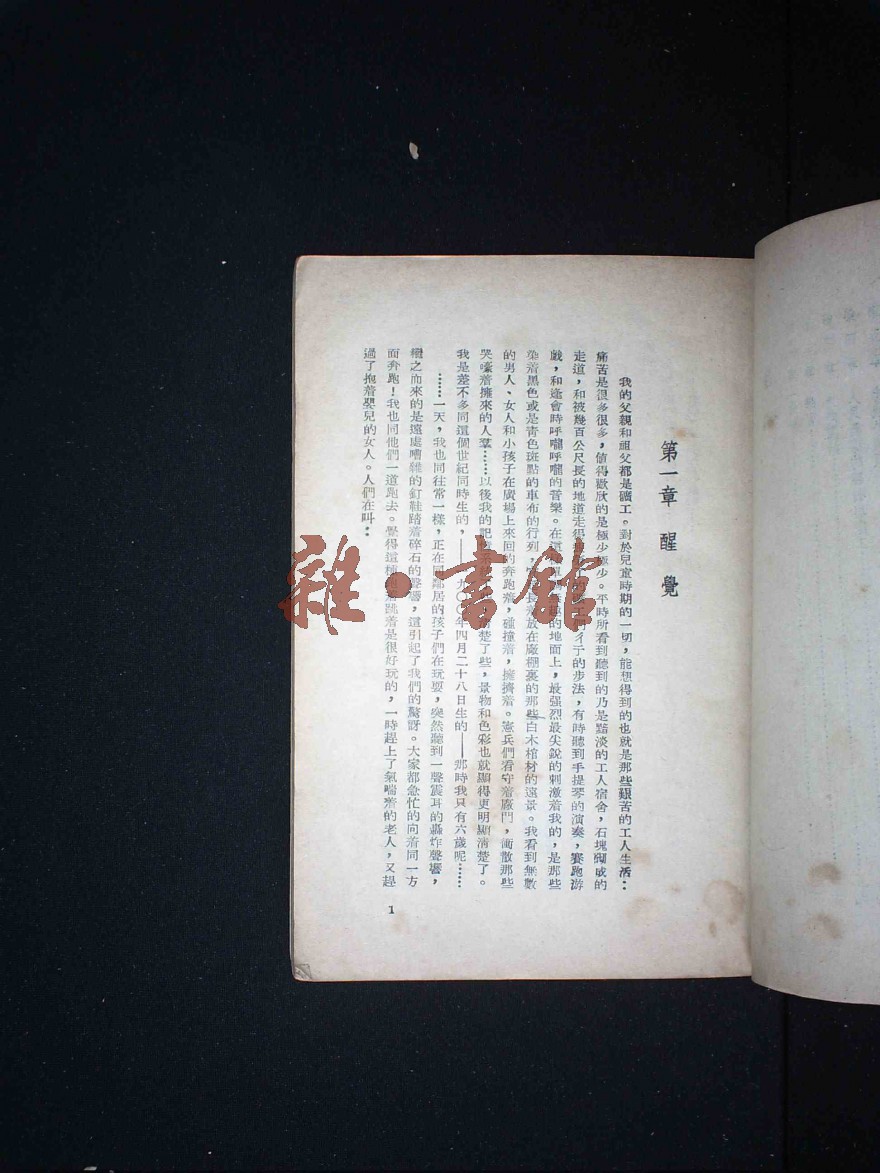 第一章 醒覺
我的父親和祖父都是礦工。對於兒童時期的一切，能想得到的也就是那些艱苦的工人生活：
痛苦是很多很多，値得歡欣的是極少極少。平時所看到聽到的乃是黯淡的工人宿舍，石塊砌成的
走道，和被幾百公尺長的地道走得 步法，有時聽到手提琴的演奏，賽跑游
戲，和逢會時呼嚨呼嚨的音樂。在這 的地面上，最强烈最尖銳的刺激着我的，是那些
染着黑色或是青色斑點的車布的行列， 放在廠棚裏的那些白木棺材的遠景。我看到無數
的男人、女人和小孩子在廣場上來回的奔跑着，碰撞着，擁擠着。憲兵們看守着廠門，衝散那些
哭嚎着擁來的人羣……以後我的記 楚了些，景物和色彩也就顯得更明顯清楚了。
我是差不多同這個世紀同時生的，——一九〇〇年四月二十八日生的——那時我只有六歲呢……
……一天，我也同往常一樣，正在同鄰居的孩子們在玩耍，突然聽到一聲震耳的轟炸聲響，
繼之而來的是遠處嘈雜的釘鞋踏着碎石的聲響，這引起了我們的驚訝。大家都急忙的向着同一方
面奔跑！我也同他們一道跑去。覺得這種跑着跳着是很好玩的，一時趕上了氣喘着的老人，又趕
過了抱着嬰兒的女人。人們在叫：
1
雜·書館